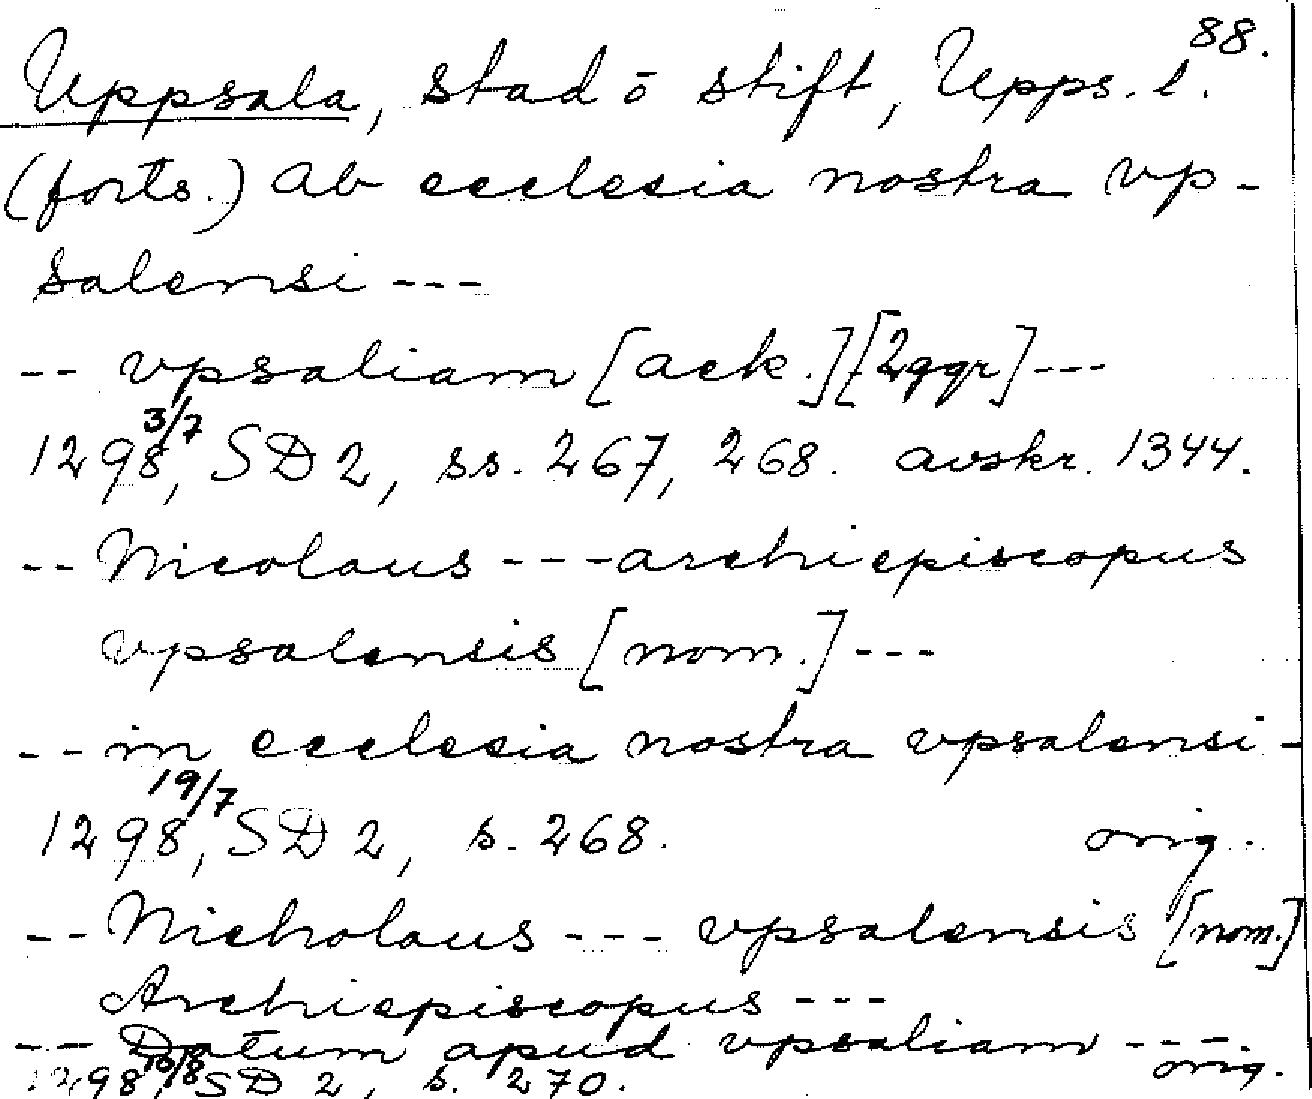 88.
Uppsala, stad o stift, Upps. l.
(forts.) Ab ecclesia nostra vp-
salensi ---
-- vpsaliam [ack.] [2ggr] ---
1298 3/7, SD 2, ss. 267, 268. avskr. 1344.
-- Nicolaus --- archiepiscopus
vpsalensis [nom.] ---
-- in ecclesia nostra vpsalensi -
1298 19/7, SD 2, s. 268. orig.
-- Nicholaus --- vpsalensis [nom.]
Archiepiscopus ---
-- Datum apud vpsaliam ---
1298 10/8, SD 2, s. 270. orig.